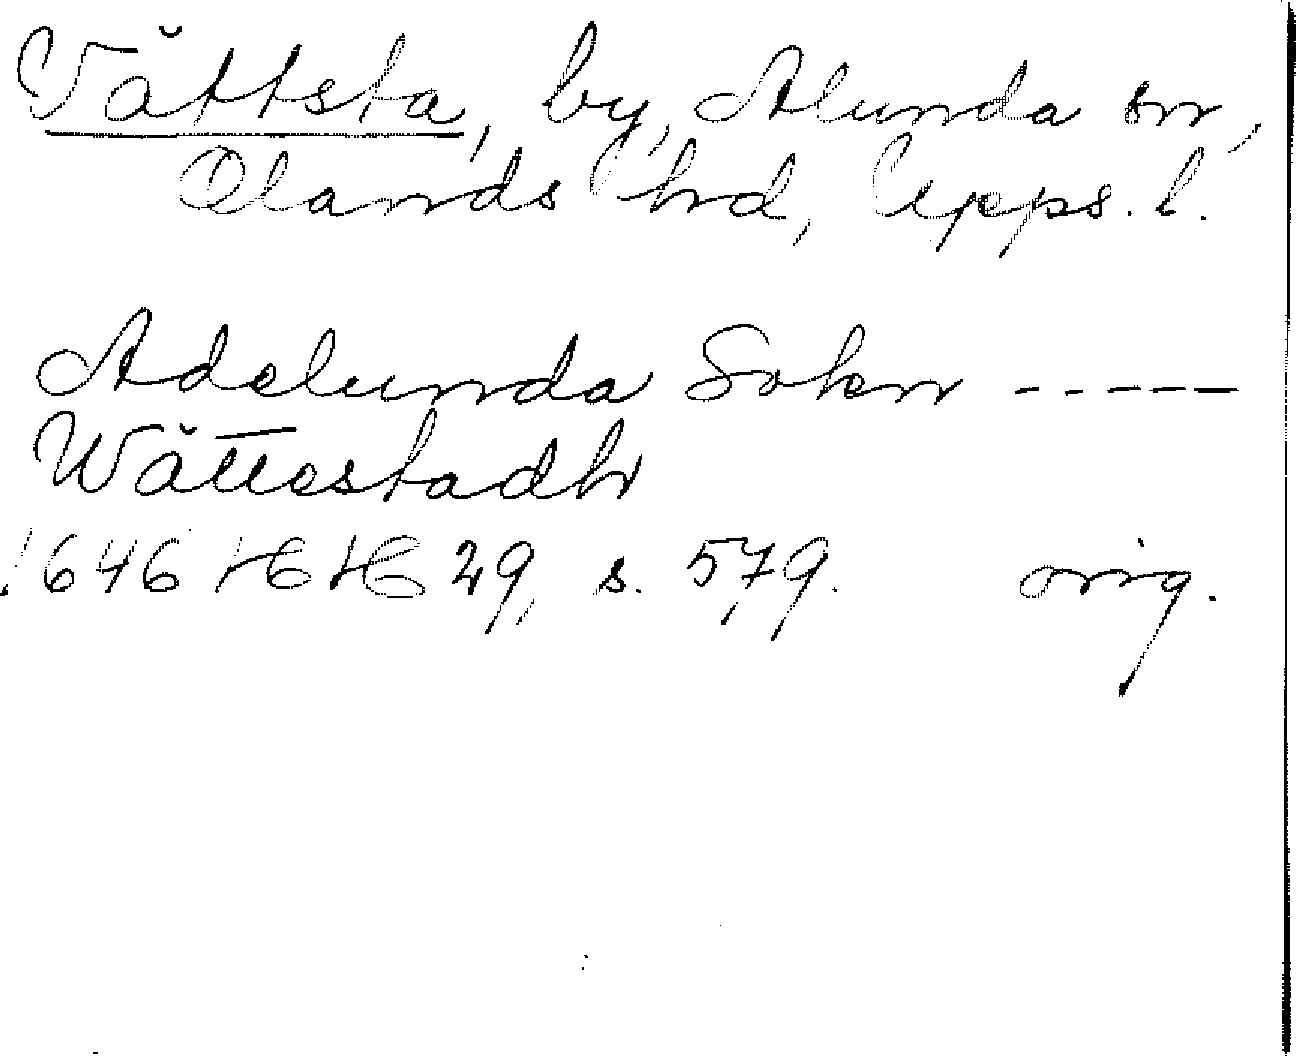 Vättsta, by, Alunda sn,
Olands hd, Upps. l.
Adelunda Sokn -----
Wättestadh
1646 HH 29, s. 579. orig.